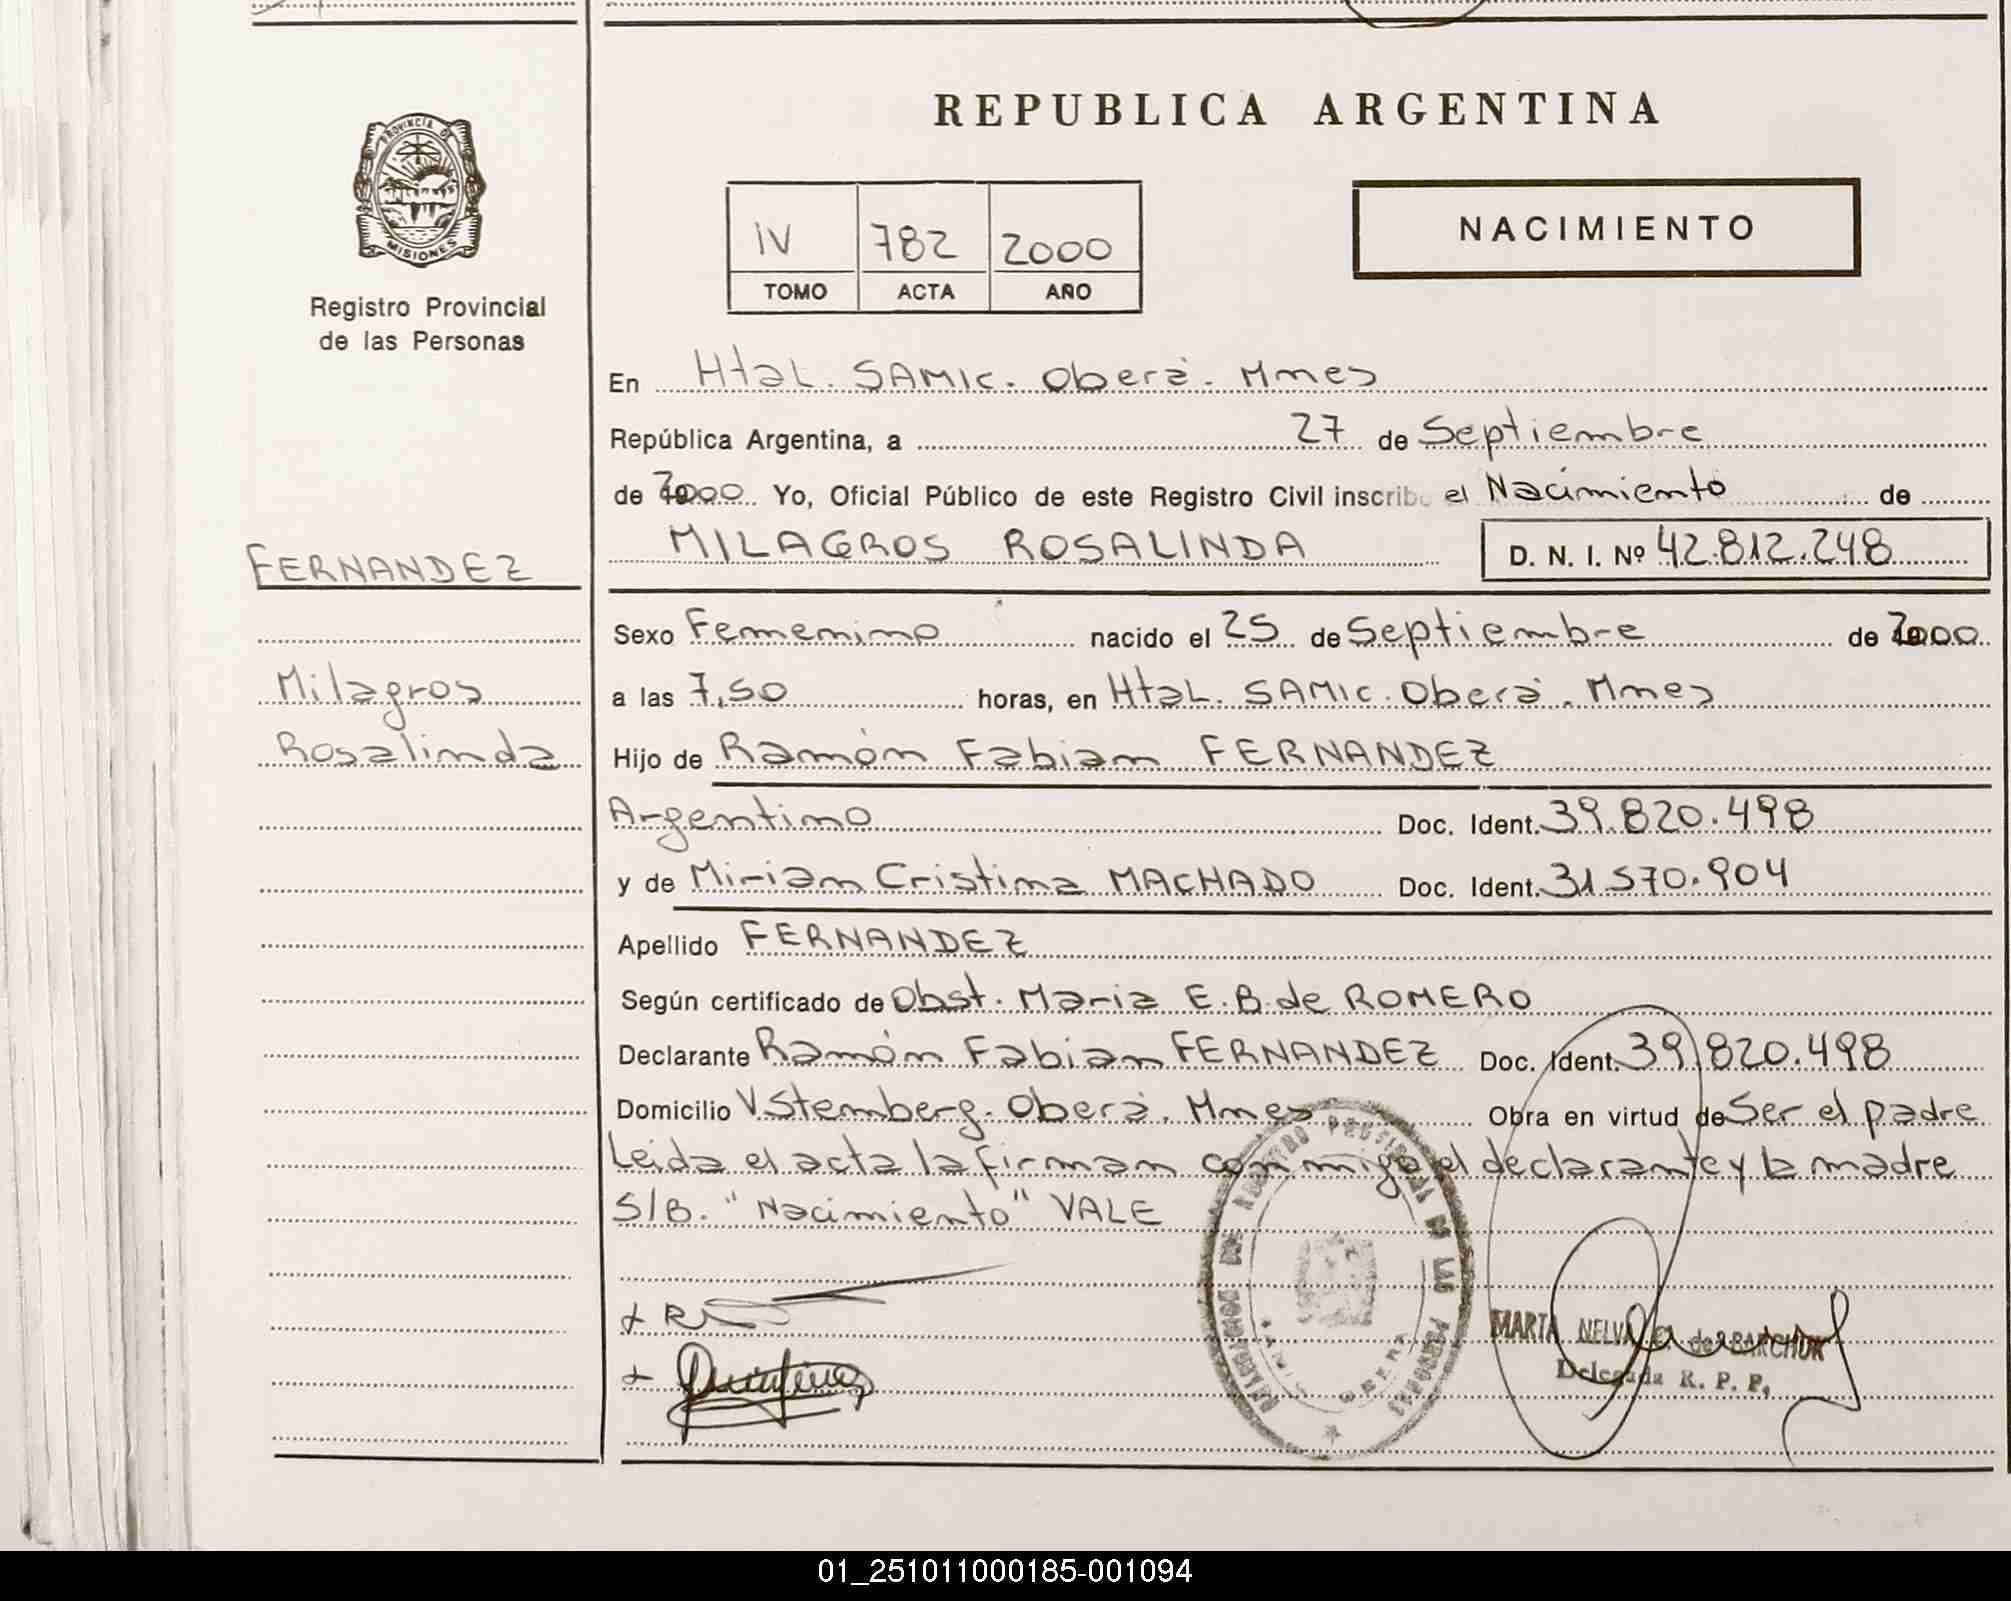 REPUBLICA ARGENTINA
PROVINCIA DE
MISIONES
Registro Provincial
de las Personas
NACIMIENTO
IV 782 2000
TOMO ACTA AÑO
En Htal. SAMIC. Oberá. Mnes
República Argentina, a 27 de Septiembre
de 2000 Yo, Oficial Público de este Registro Civil inscribo el Nacimiento de
FERNANDEZ
MILAGROS ROSALINDA D. N. I. Nº 42.812.248
Sexo Femenino nacido el 25 de Septiembre de 2000
Milagros
a las 7,50 horas, en Htal. SAMIC. Oberá. Mnes
Rosalinda
Hijo de Ramón Fabian FERNANDEZ
Argentino Doc. Ident. 39.820.498
y de Miriam Cristina MACHADO Doc. Ident. 31570.904
Apellido FERNANDEZ
Según certificado de Obst. Maria E.B. de ROMERO
Declarante Ramón Fabian FERNANDEZ Doc. Ident. 39.820.498
Domicilio V. Stemberg. Oberá. Mnes Obra en virtud de Ser el padre
Leida el acta la firman conmigo el declarante y la madre
S/B. "Nacimiento" VALE
MARTA NELVA C. de BARCHUK
Delegada R. P. P.
01_251011000185-001094